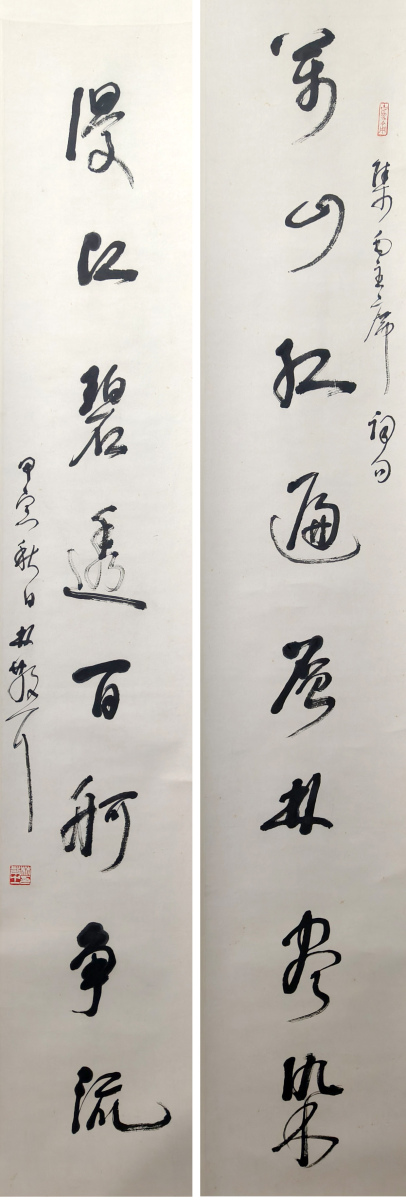 集毛主席词句
萬山红遍层林尽染
漫江碧透百舸争流
甲寅秋日林散之